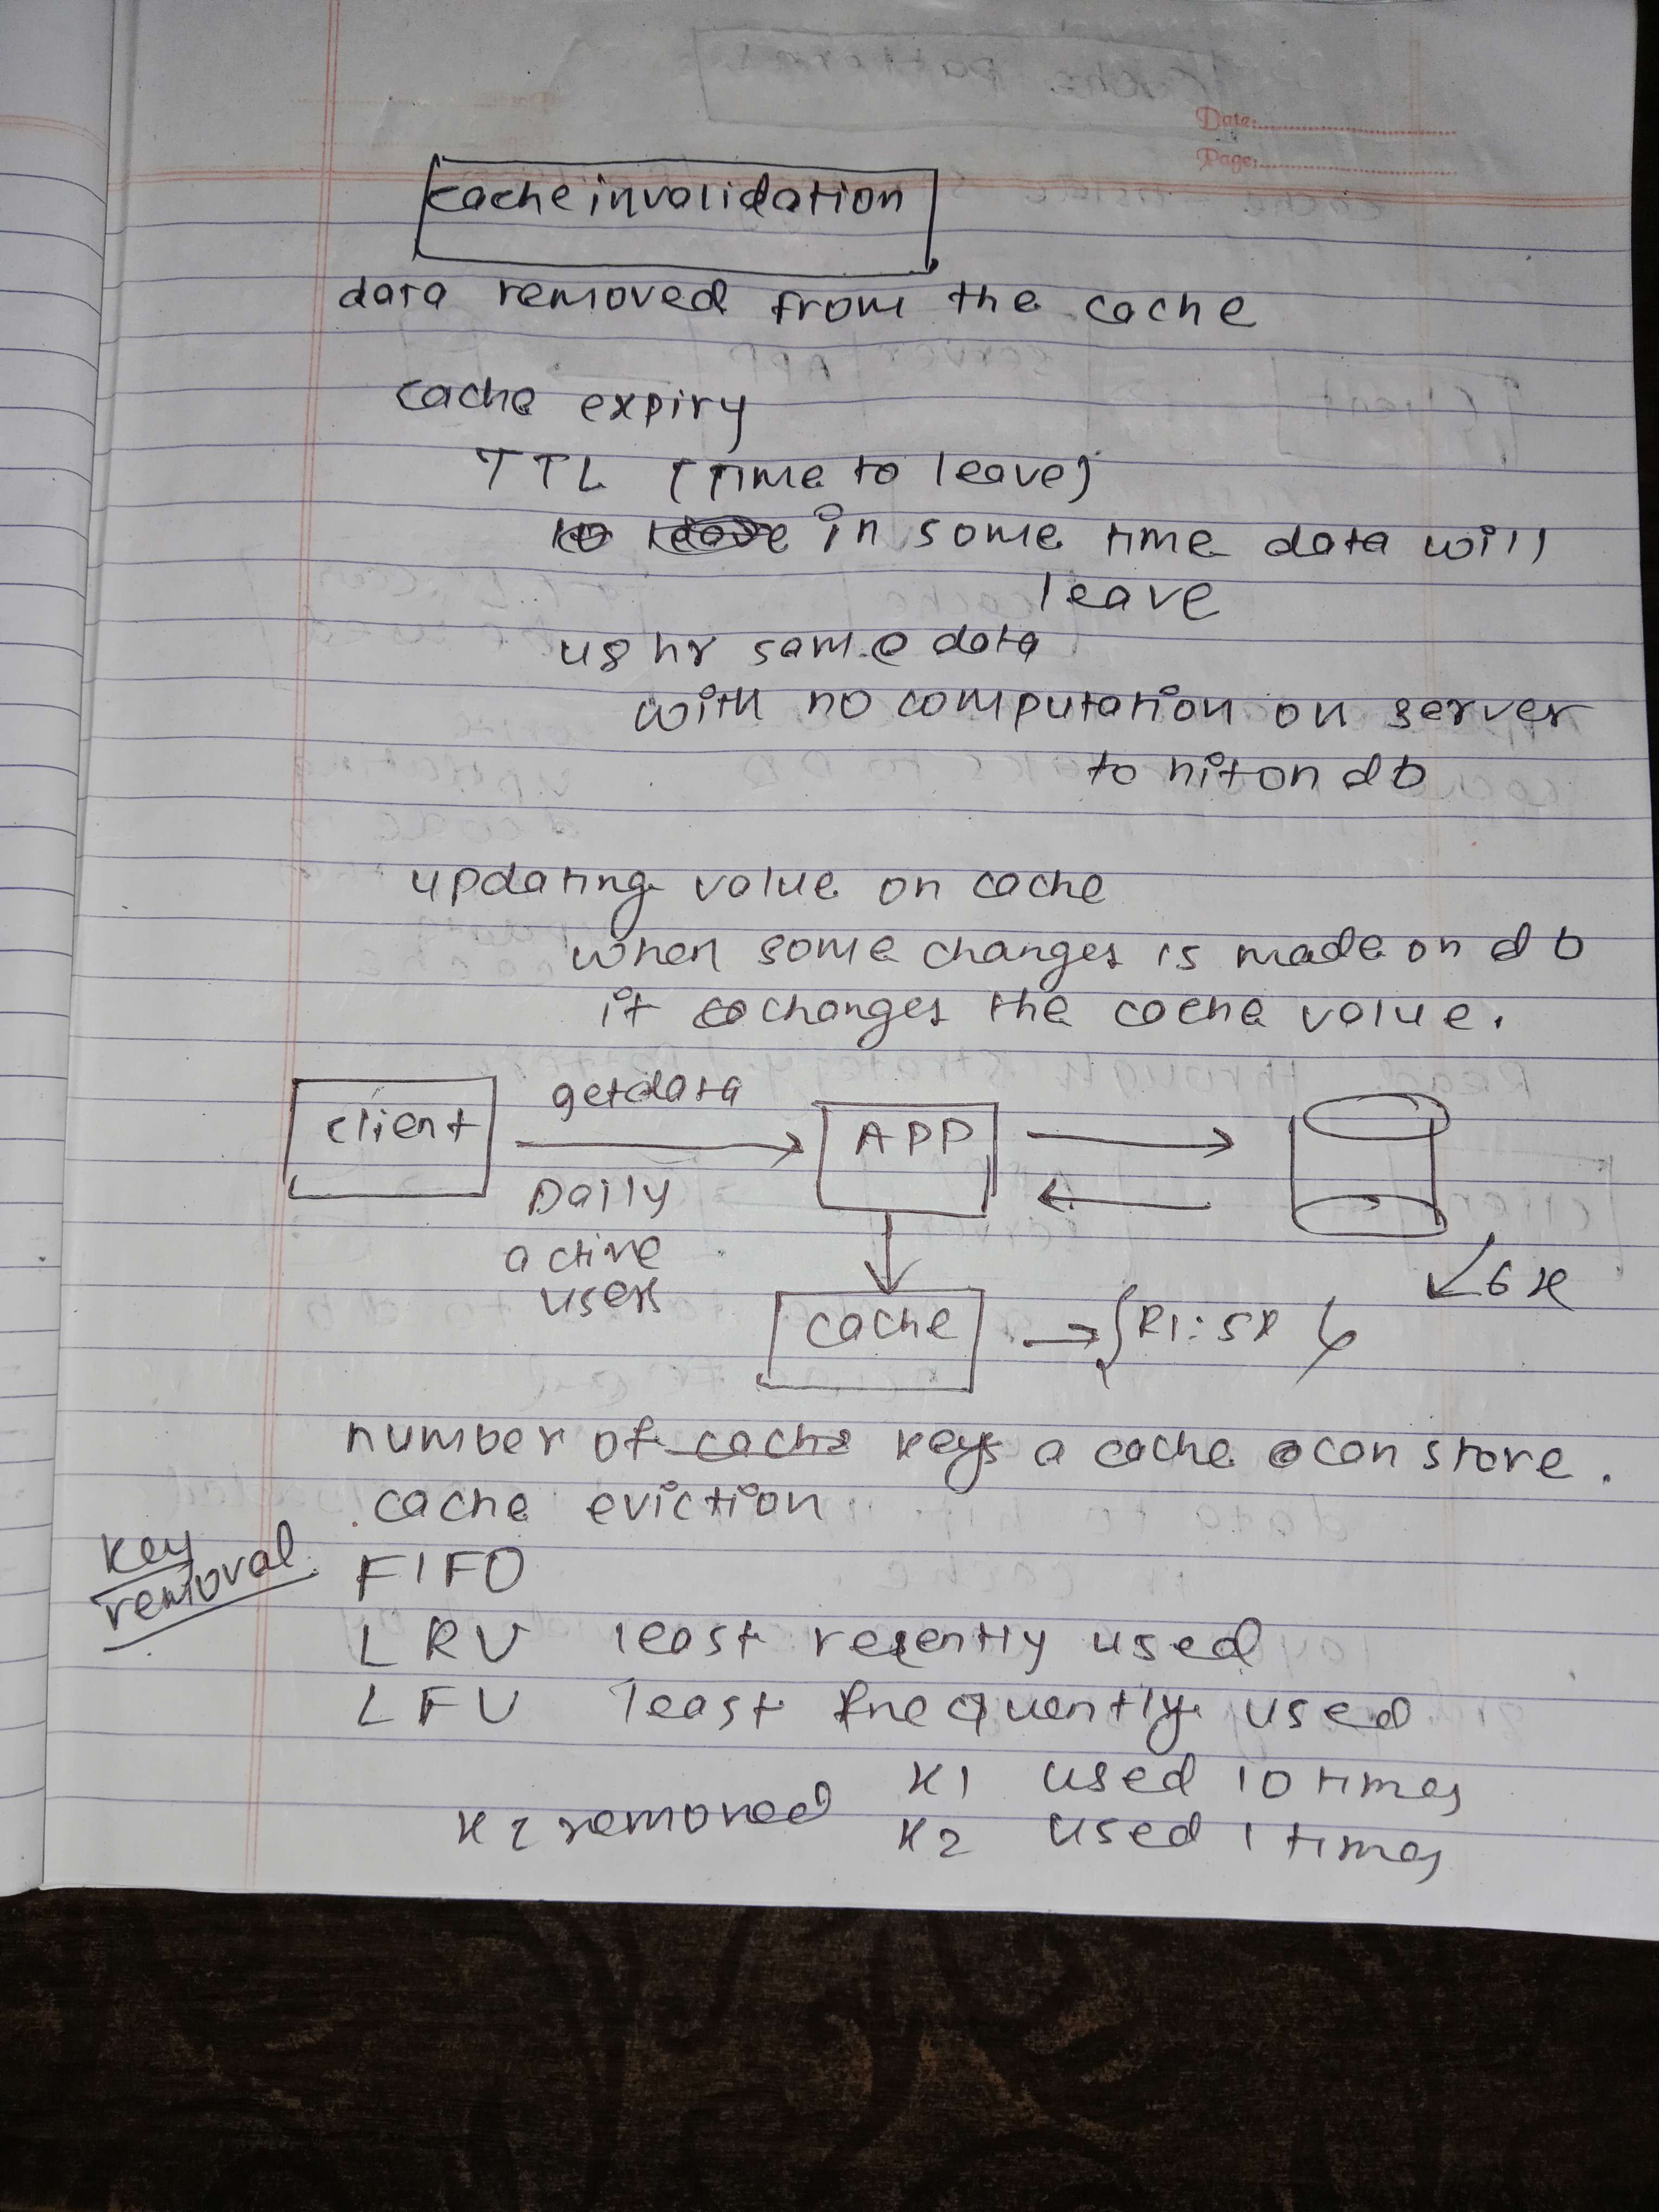 Date:
Page:
cache invalidation
data removed from the cache
cache expiry
TTL (Time to leave)
in some time data will
leave
48 hr same data
with no computation on server
to hit on db
updating value on cache
when some changes is made on db
it changes the cache value.
client
getdata
APP
Daily
active
users
6K
cache
number of cache keys a cache can store.
cache eviction
key
removal
FIFO
LRU least recently used
LFU least frequently used
K1 used 10 times
K2 removed
K2 used 1 times